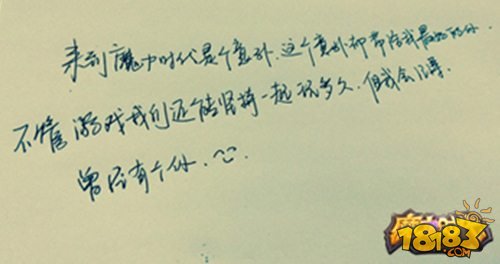 来到魔力时代是个意外.这个意外却带给我最好的你
不管游戏我们还能坚持一起玩多久.但我会记得.
曾经有个你.
18183
.com